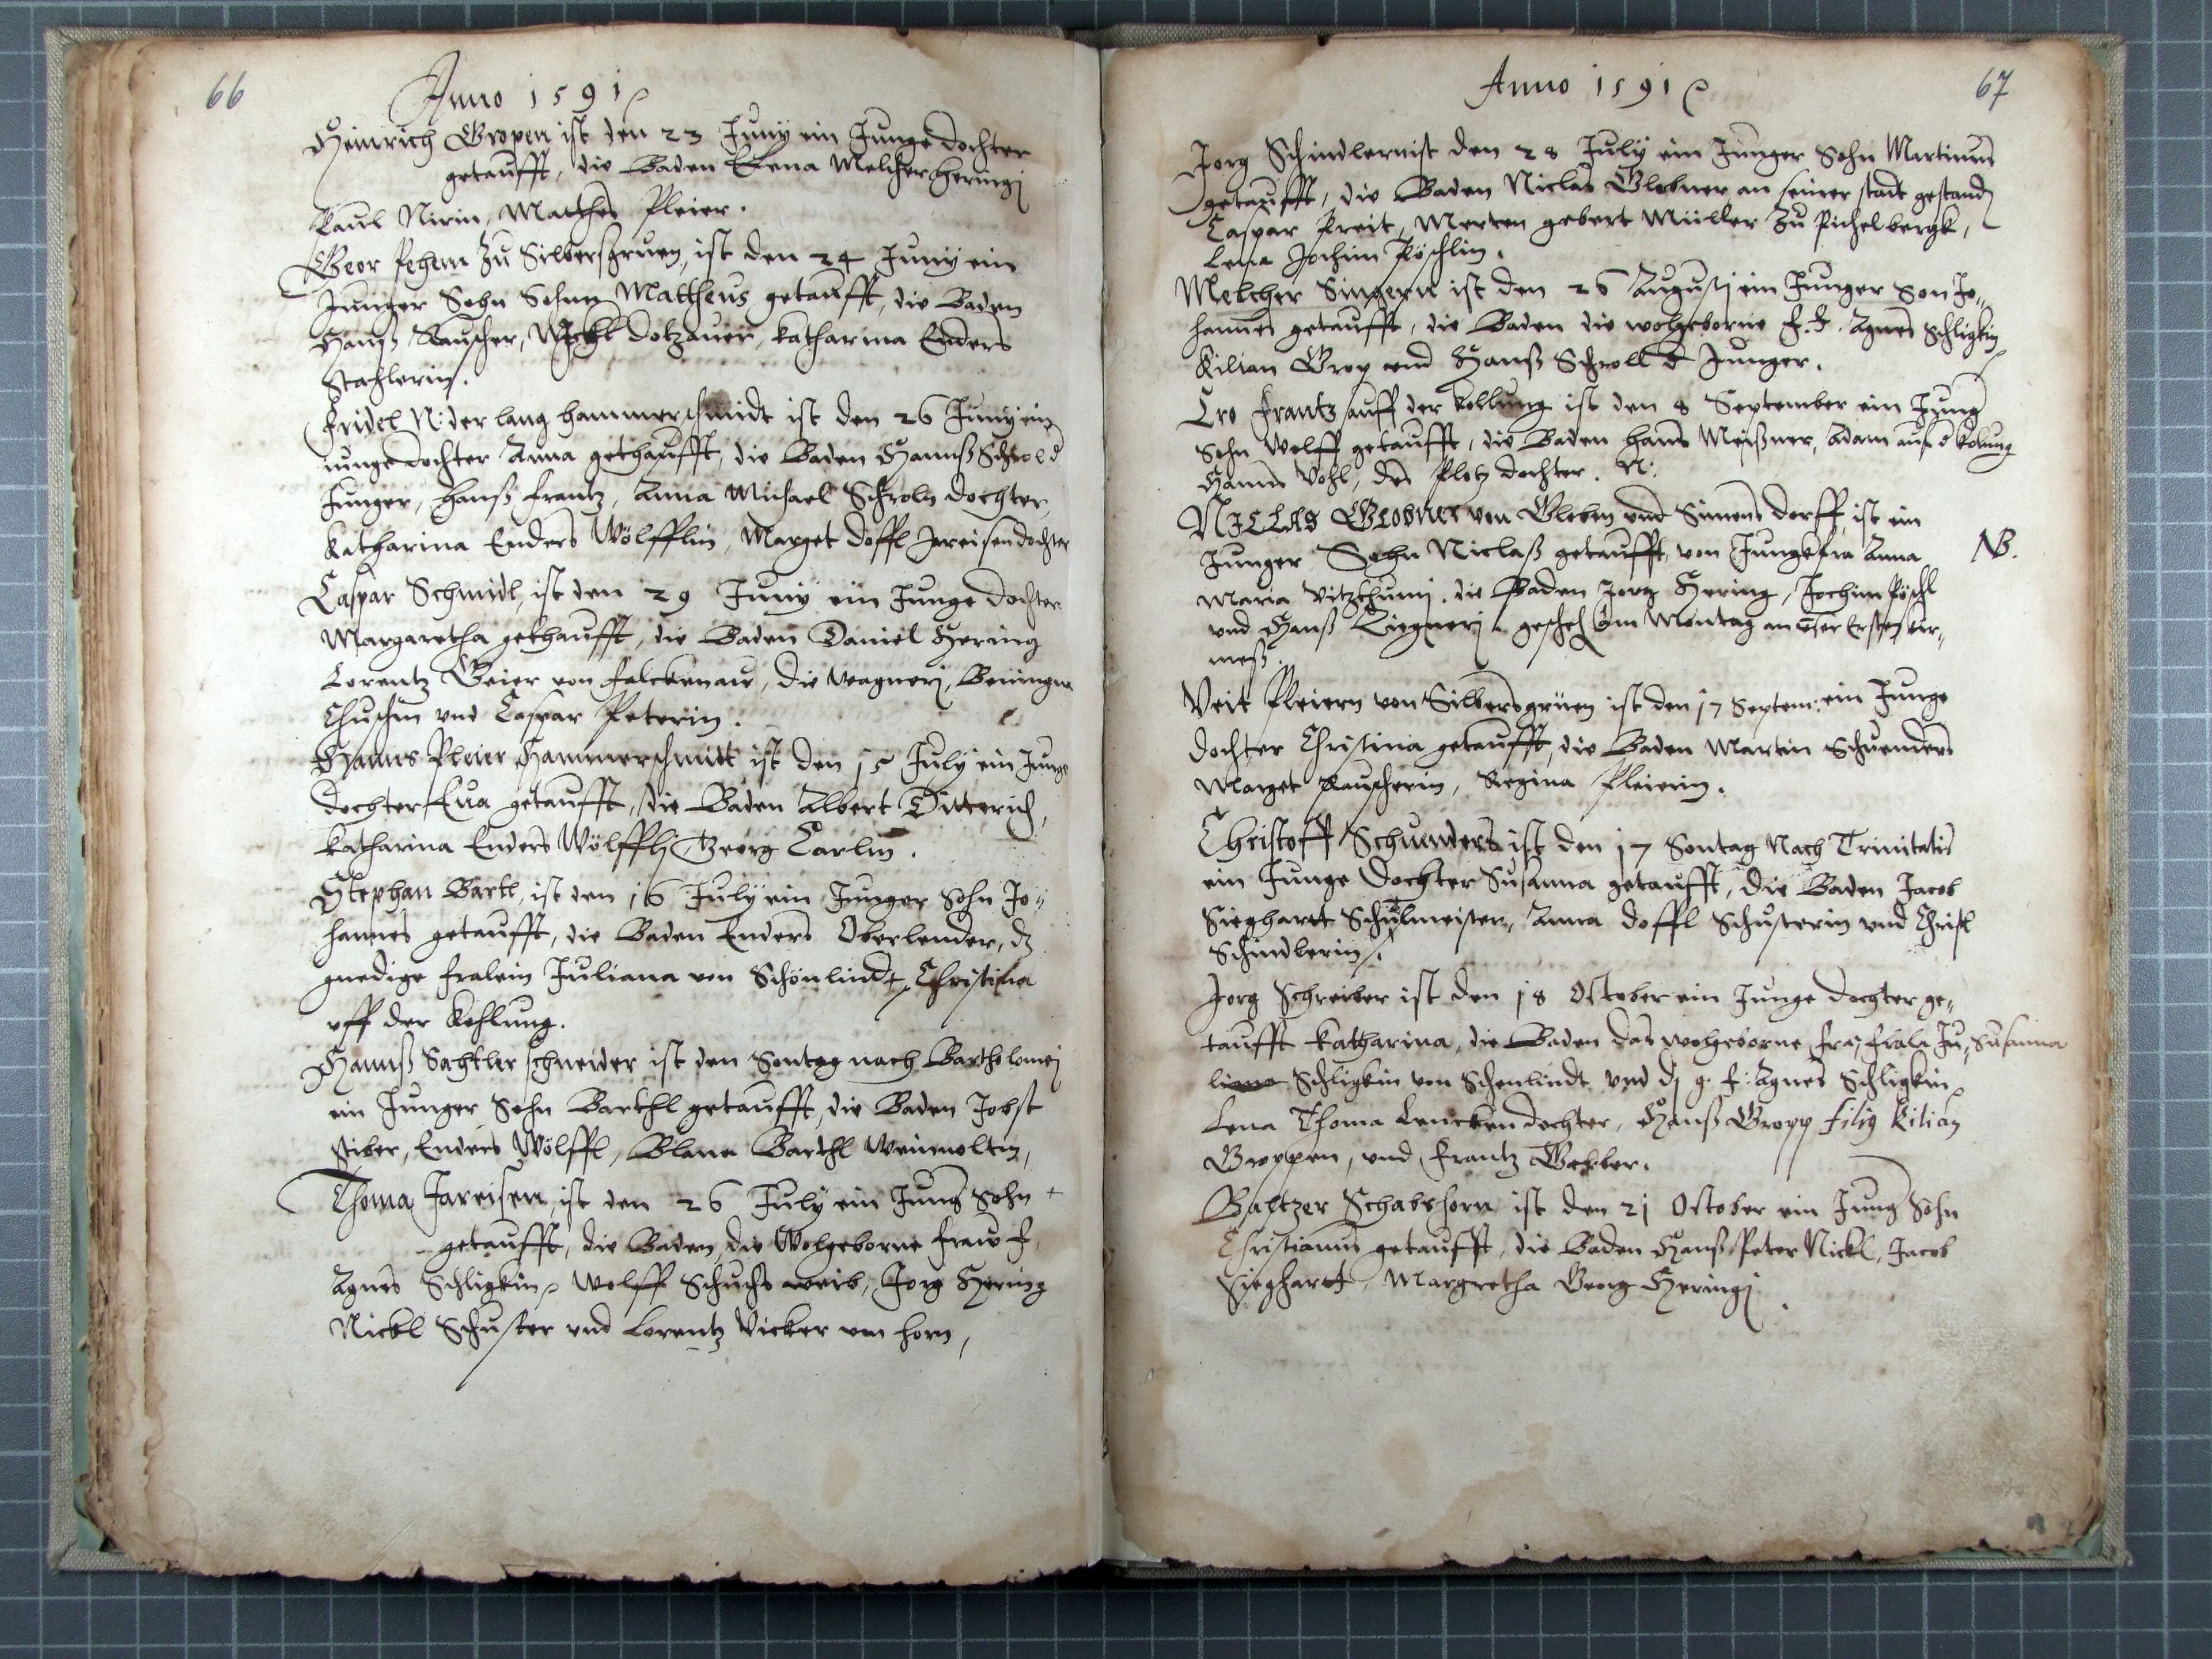 66
Anno 1591
Heinrich Gropen ist den 23 Juny ein Junge dochter
getaufft, die Baden Lena Melcher Heringj
Paul Nirin, Mathes Pleier.
Geor Pehem zu Silbersgruen, ist den 24 Juny ein
Junger Sohn Mattheus getaufft, die Baden
Hanß Rauscher, Nickl Dotzauer, Katharina Enders
Stachlerin.
Fridel N: der lang hammerschmidt ist den 26 Juny ein
iunge dochter Anna gethaufft, die Baden Hannß Schrol d
Junger, Hanß Frantz, Anna Michael Schroln dochter,
Katharina Enders Wölfflin, Marget Doffl Jareisen dochter
Caspar Schmidl, ist den 29 Juny ein Junge dochter
Margaretha gethaufft, die Baden Daniel Hering
Lorentz Beier von Falckenaw, die Wagnerj,
und Caspar Peterin.
Hanns Pleier Hammerschmitt ist den 15 July ein Junge
dochter Eua getaufft, die Baden Albert Ditterich,
Katharina Enders Wölfflj Georg Carlin.
Stephan Bartl, ist den 16 July ein Junger Sohn Jo„
hannes getaufft, die Baden Enders Oberlender, dz
gnedige fralein Juliana von Schönlindt, Christina
uff der Kohlung.
Hannß Sachtler schneider ist den Sontag nach Bartholomej
ein Junger Sohn Barthl getaufft, die Baden Jobst
Stiber, Enders Wölffl, Barthl
Thoma Jareisen, ist den 26 July ein Jung Sohn +
getaufft, die Baden, die Wolgeborne Fraw F.
Agnes Schligkin, Wolff Schuchs weib, Jorg Hering
Nickl Schuster und Lorentz Vicker von Horn,
67
Anno 1591
Jorg Schindlern ist den 28 July ein Junger Sohn Martinus
getaufft, die Baden Niclas Globner an seiner stadt gestand
Caspar Preit, Merten gebert Müller zu Pichelbergk,
Lena Jochim Pöschlin.
Melcher Singern ist den 26 Augustj ein Junger Son Jo„
hannes getaufft, die Baden die wolgeborne F. F. Agnes Schligkin
Kilian Grop und Hanß Schroll d Junger.
Frantz auff der Kollung ist den 8 September ein Jung
Sohn Wolff getaufft, die Baden Hans Meißner, Adam auf d Kolung
Hanns Vohl, des Plotz dochter. N:
Niclas Globner von Globen und Simons dorff, ist ein
Junger Sohn Niclaß getaufft, von Jungkfra Anna NB.
Maria Vitzthumj. die Baden Jorg Hering, Jochim Pöschl
und Hanß Ziegnerj. gescheh am Montag an
meß.
Veit Pleiern von Silbersgrüen ist den 17 Septem: ein Junge
dochter Christina getaufft, die Baden Martin Schuenders
Marget Rauscherin, Regina Pleierin.
Christoff Schuenders ist den 17 Sontag Nach Trinitatis
ein Junge Dochter Susanna getaufft, die Baden Jacob
Sieghartt Schulmeister, Anna Doffl Schusterin und Christl
Schindlerin.
Jorg Schreiber ist den 18 October ein Junge dochter ge„
taufft Katharina, die Baden das wolgeborne fra, frale Ju„ Susanna
liana Schligkin von Schenlindt und dj g. F: Agnes Schligkin
Lena Thoma Lencken dochter, Hanß Gropp filig Kilian
Groppen, und Frantz
Baltzer Schabshorn ist den 21 October ein Jung Sohn
Christianus getaufft, die Baden Hanß Peter Nickl, Jacob
Sieghartt, Margretha Georg Heringj